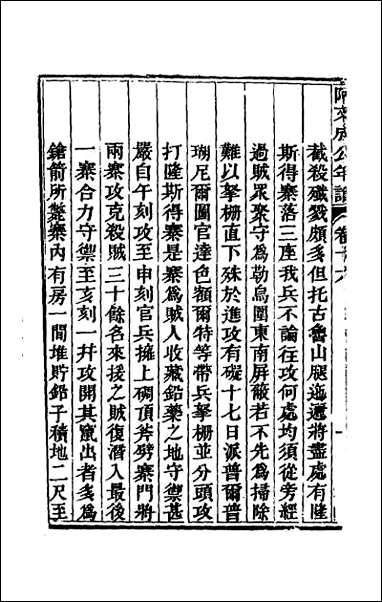 阿文成公年譜 卷十六
截殺殲戮頗多但托古魯山腿迤邐將盡處有隆
斯得寨落三座我兵不論往攻何處均須從旁經
過賊眾聚守為勒烏圍東南屏蔽若不先為掃除
難以拏柵直下殊於進攻有礙十七日派普爾普
瑚尼爾圖官達色額爾特等帶兵拏柵並分頭攻
打隆斯得寨是寨為賊人收藏鉛藥之地守禦甚
嚴自午刻攻至申刻官兵擁上碉頂斧劈寨門將
兩寨攻克殺賊三十餘名來援之賊復潛入最後
一寨合力守禦至亥刻一并攻開其竄出者多為
鎗箭所斃寨內有房一間堆貯鉛子積地二尺至